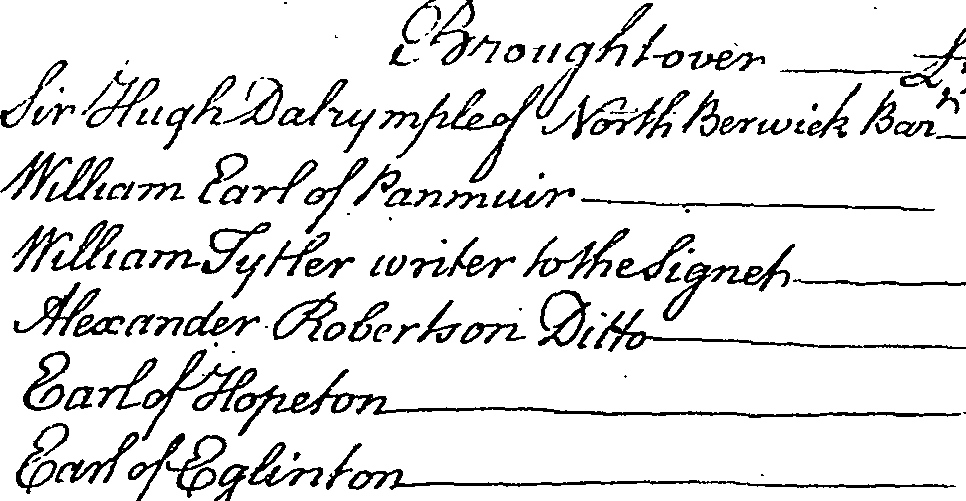 Broughtover
Sir Hugh Dalrymple of North Berwick Bar
William Earl of Panmuir
William Tytler writer to the Signet
Alexander Robertson Ditto
Earl of Hopeton
Earl of Eglinton